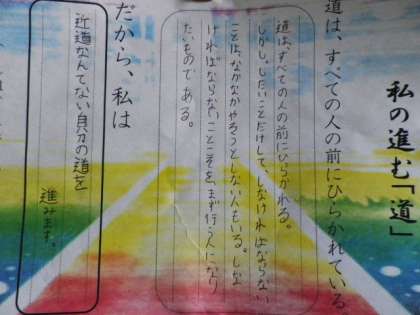 私の進む「道」
道は、すべての人の前にひらかれている
道は、すべての人の前にひらかれる。
しかし、したいことだけして、しなければならない
ことは、なかなかやろうとしない人もいる。しな
ければならないことこそを、まず行う人になり
たいものである。
だから、私は
近道なんてない自分の道を
進みます。